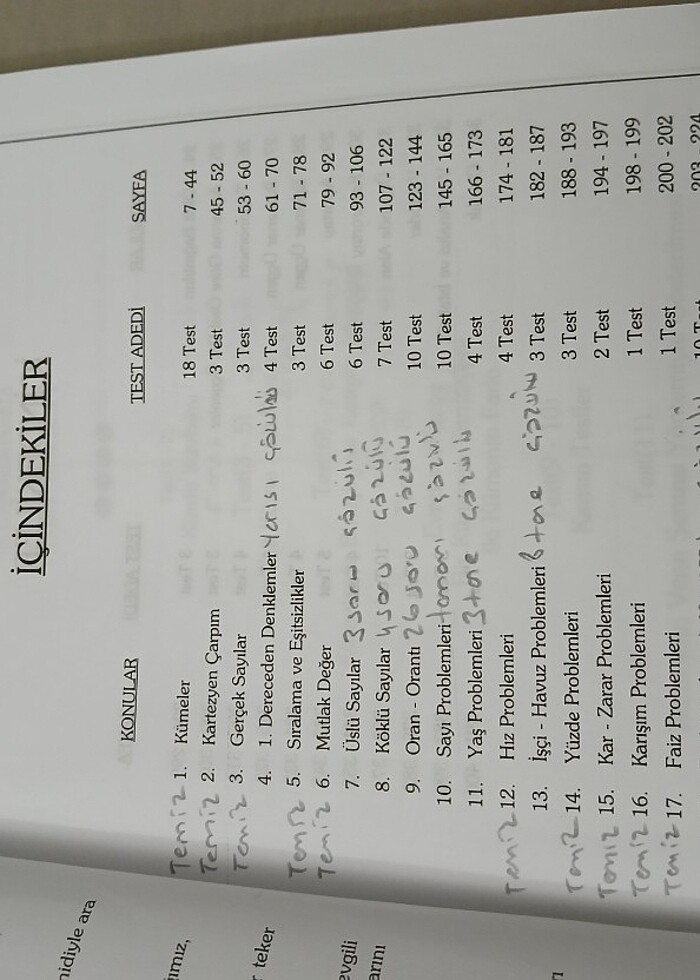 İÇİNDEKİLER
KONULAR TEST ADEDİ SAYFA
Temiz 1. Kümeler 18 Test 7 - 44
Temiz 2. Kartezyen Çarpım 3 Test 45 - 52
Temiz 3. Gerçek Sayılar 3 Test 53 - 60
4. 1. Dereceden Denklemler Yarısı çözülü 4 Test 61 - 70
Temiz 5. Sıralama ve Eşitsizlikler 3 Test 71 - 78
Temiz 6. Mutlak Değer 6 Test 79 - 92
7. Üslü Sayılar 3 soru çözülü 6 Test 93 - 106
8. Köklü Sayılar 4 soru çözülü 7 Test 107 - 122
9. Oran - Orantı 26 soru çözülü 10 Test 123 - 144
10. Sayı Problemleri tamamı çözülü 10 Test 145 - 165
11. Yaş Problemleri 3 tane çözülü 4 Test 166 - 173
Temiz 12. Hız Problemleri 4 Test 174 - 181
13. İşçi - Havuz Problemleri 8 tane çözülü 3 Test 182 - 187
Temiz 14. Yüzde Problemleri 3 Test 188 - 193
Temiz 15. Kar - Zarar Problemleri 2 Test 194 - 197
Temiz 16. Karışım Problemleri 1 Test 198 - 199
Temiz 17. Faiz Problemleri 1 Test 200 - 202
10 Test 203 - 224
nidiyle ara
ımız,
r teker
evgili
arını